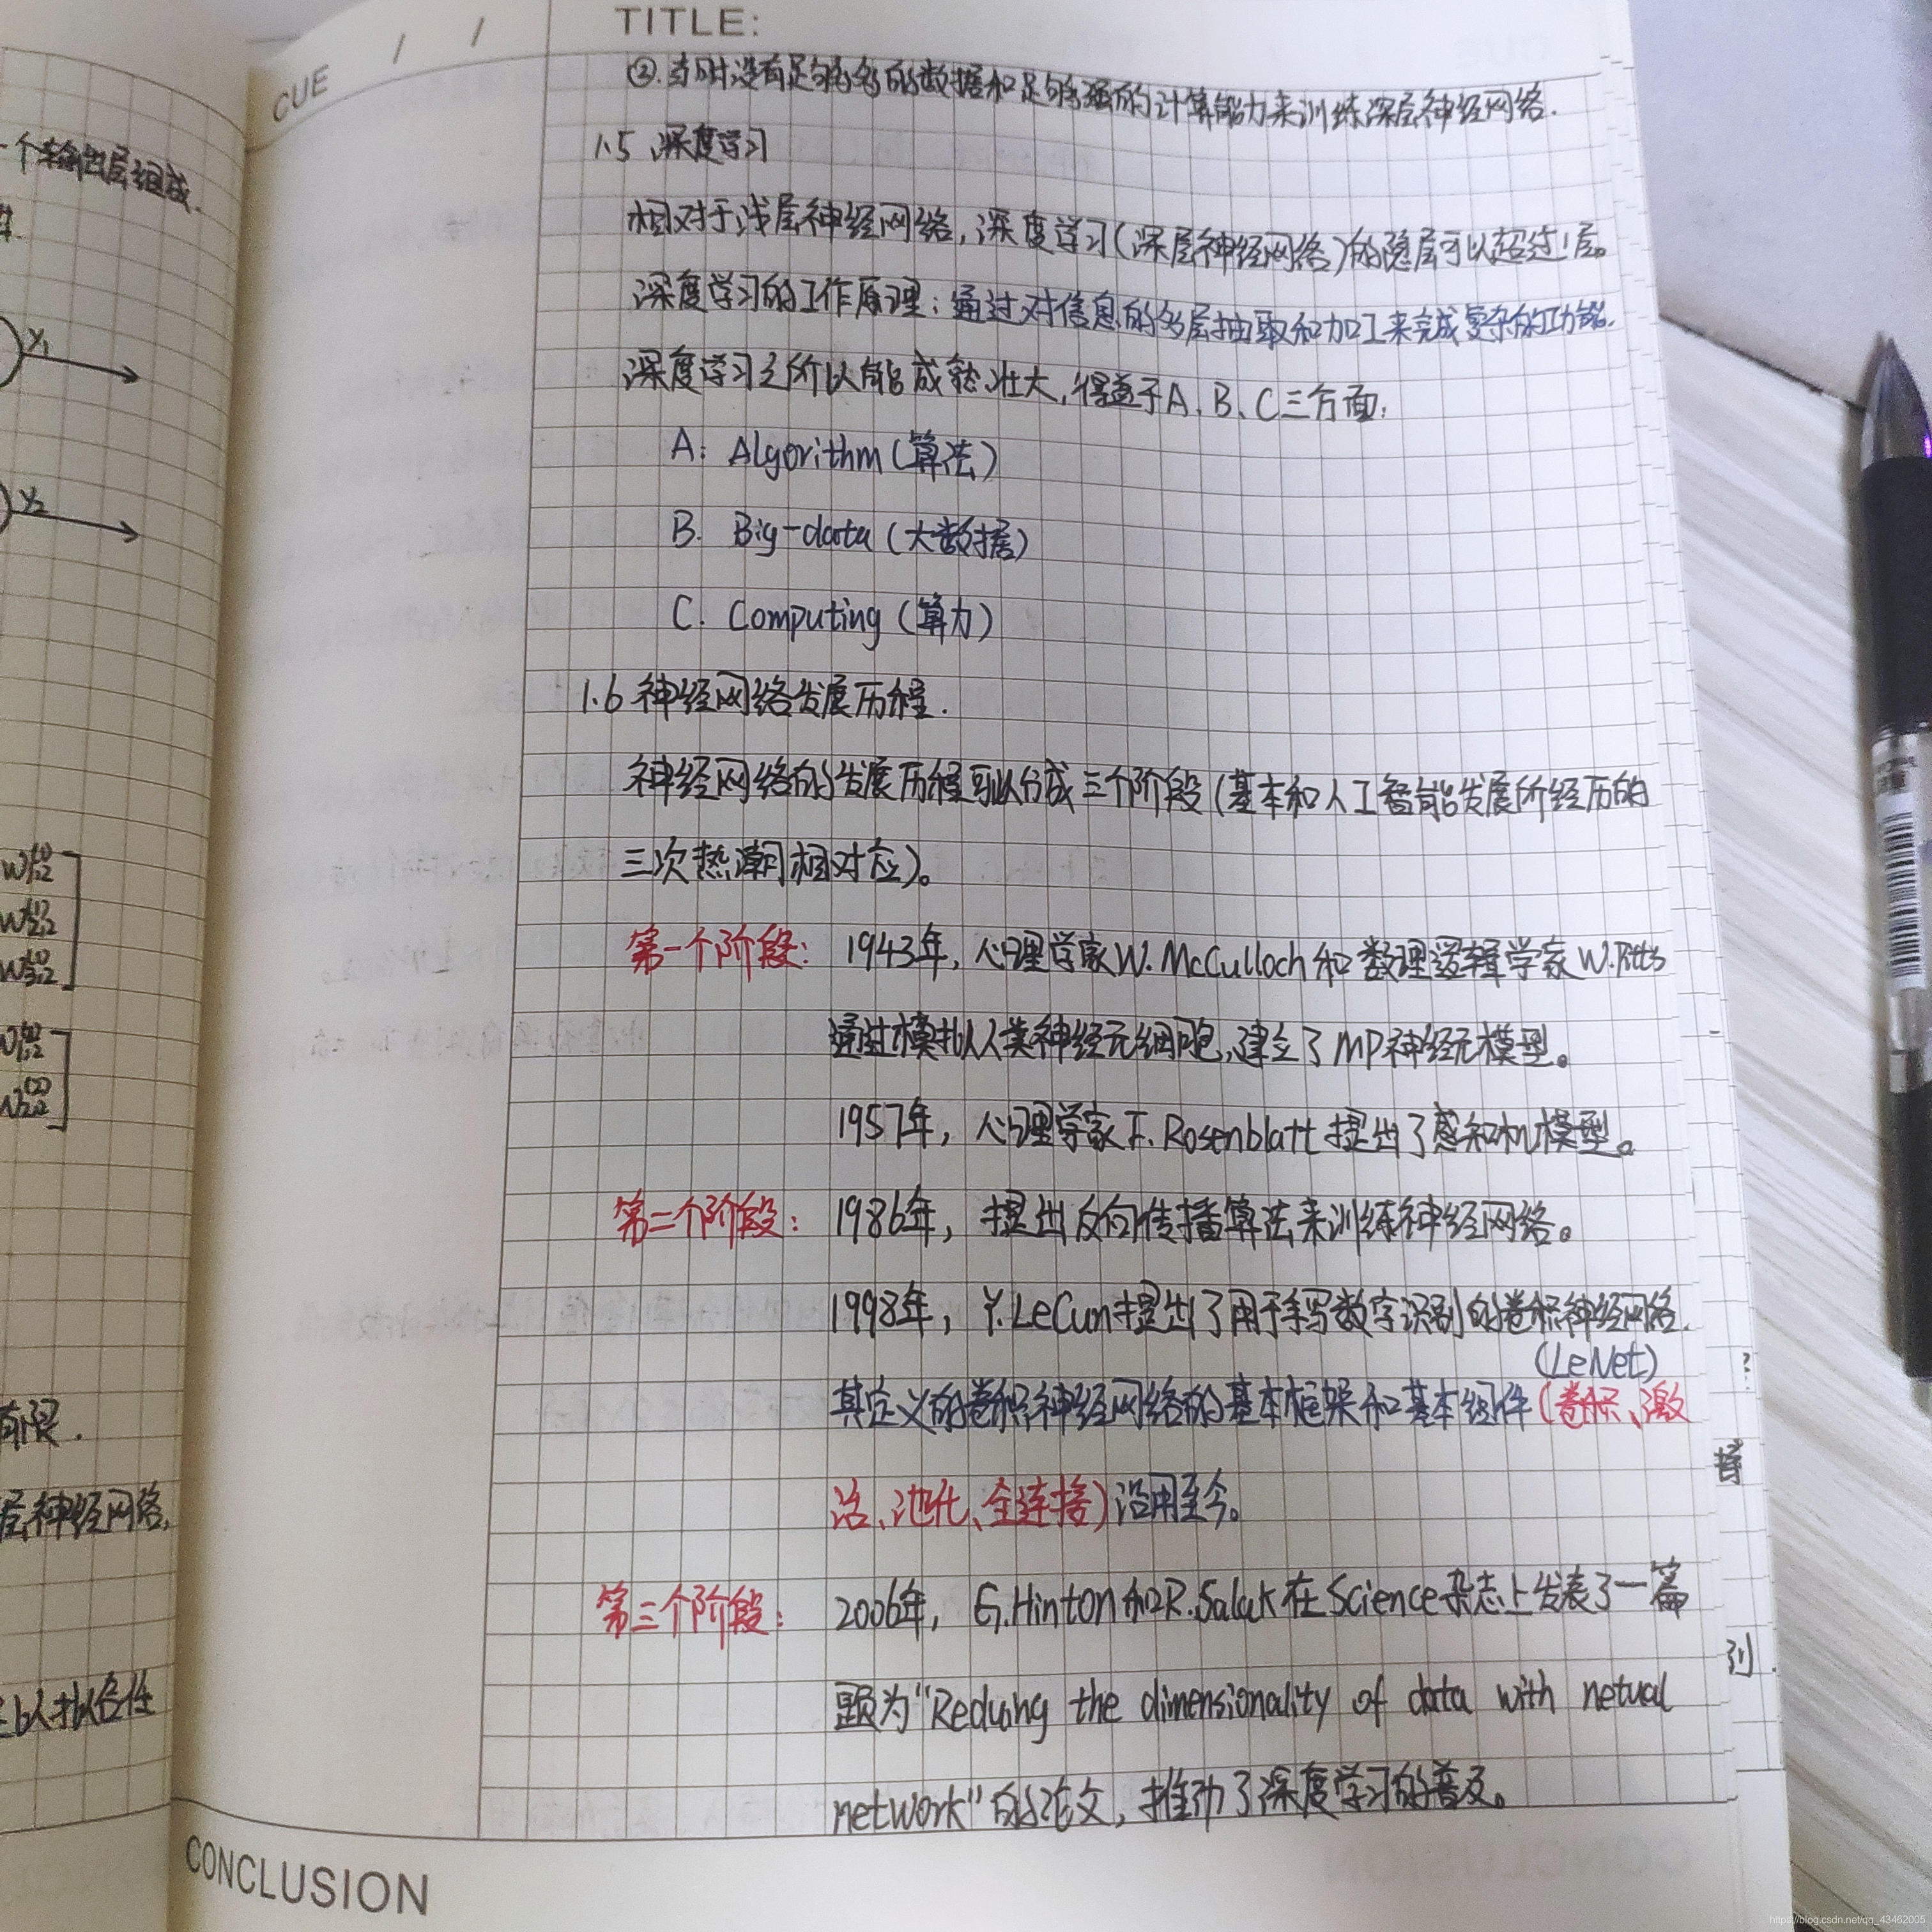 CUE / /
TITLE:
②.当时没有足够多的数据和足够强的计算能力来训练深层神经网络.
1.5 深度学习
相对于浅层神经网络,深度学习(深层神经网络)的隐层可以超过1层。
深度学习的工作原理:通过对信息的多层抽取和加工来完成复杂的功能.
深度学习之所以能成熟壮大,得益于A、B、C三方面:
A: Algorithm(算法)
B. Big-data(大数据)
C. Computing(算力)
1.6 神经网络发展历程.
神经网络的发展历程可以分成三个阶段(基本和人工智能发展所经历的
三次热潮相对应)。
第一个阶段: 1943年,心理学家W. McCulloch和数理逻辑学家W.Pitts
通过模拟人类神经元细胞,建立了MP神经元模型。
1957年,心理学家F. Rosenblatt提出了感知机模型。
第二个阶段: 1986年,提出反向传播算法来训练神经网络。
1998年,Y.LeCun提出了用于手写数字识别的卷积神经网络.
(LeNet)
其定义的卷积神经网络的基本框架和基本组件(卷积、激
活、池化、全连接)沿用至今。
第三个阶段: 2006年,G.Hinton和R.Salak在Science杂志上发表了一篇
题为"Reducing the dimensionality of data with netual
network"的论文,推动了深度学习的普及。
CONCLUSION
一个输出层组成.
y1
y2
有限.
层神经网络,
https://blog.csdn.net/qq_43462005